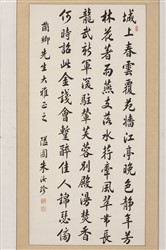 城上春雲覆苑牆江亭晚色靜年芳
林花著雨燕支落水荇牽風翠帶長
龍武新軍深駐輦芙蓉別殿漫焚香
何時詔此金錢會暫醉佳人錦瑟傍
蘭卿先生大雅正之 隘園朱汝珍